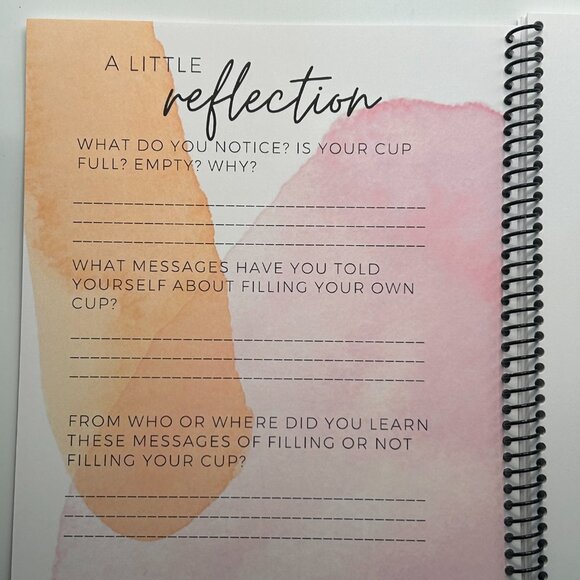 A LITTLE
reflection
WHAT DO YOU NOTICE? IS YOUR CUP
FULL? EMPTY? WHY?
WHAT MESSAGES HAVE YOU TOLD
YOURSELF ABOUT FILLING YOUR OWN
CUP?
FROM WHO OR WHERE DID YOU LEARN
THESE MESSAGES OF FILLING OR NOT
FILLING YOUR CUP?